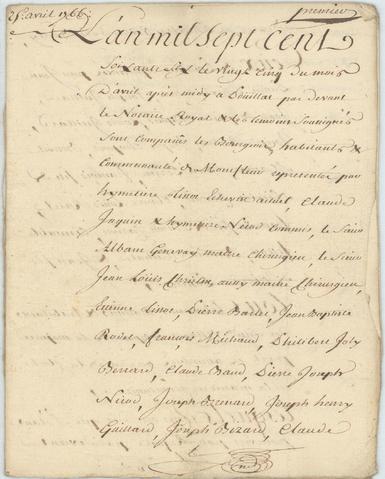 25 avril 1766
premier
L'an mil sept cent
Soixante six le vingt cinq du mois
D'avril après midy a Bouillat par devant
le Notaire Royal & les temoins Soussignés
Sont comparus les Bourgeois habitants &
Communauté de represente par
hymetiere Echevin actuel, Claude
Jaquin & hymetiere Nicod commis, le Sieur
Alban Genevay maitre Chirurgien, le Sieur
Jean Louis aussy maitre Chirurgien,
Etienne Pierre Jean Baptiste
Rodet, François Michaud, Philibert Joly
Bernard, Claude Baud, Pierre Joseph
Nicod, Joseph Joseph henry
Gaillard, Joseph Bezard, Claude